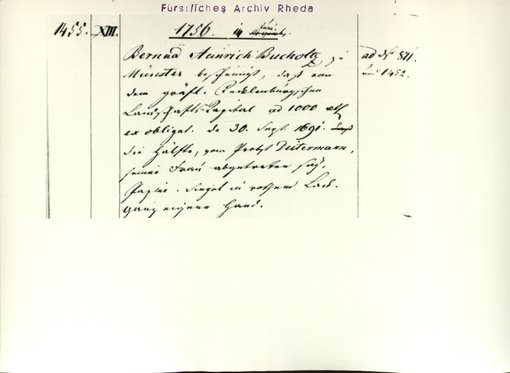 Fürstliches Archiv Rheda
1455. XIII. 1756. 14 Juni
Bernad Heinrich Bucholtz, zu ad № 811.
Münster bescheinigt, daß von und 1452.
dem gräfl. Tecklenburgschen
Landschafts-Capital ad 1000
ex obligat. de 30. Sept. 1691.
die Hälfte, vom Probst Deitermann,
seiner Frau abgetreten sey.
Papier. Siegel in rothem Lack.
Ganz eigener Hand.